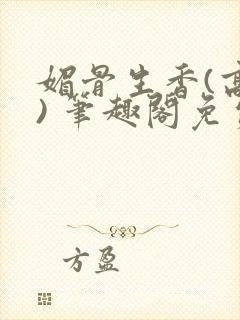 媚骨生香(高
) 笔趣阁免
方盈